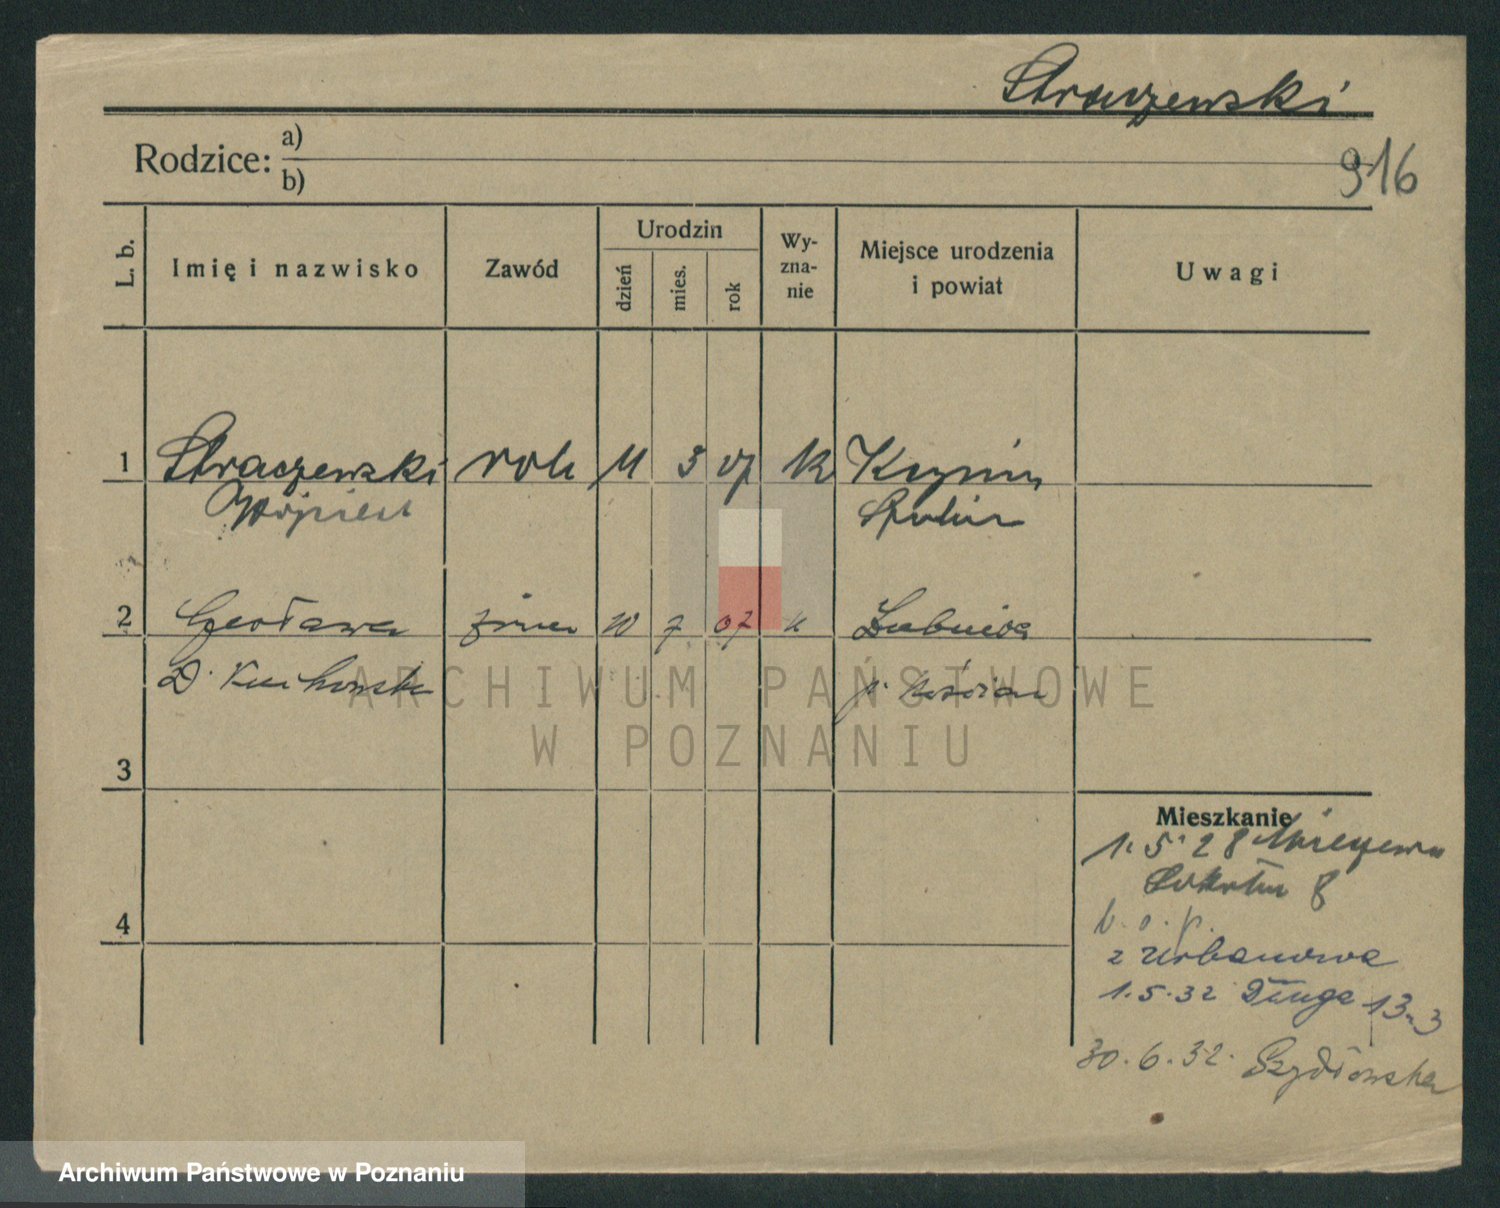 Straczewski
916
Rodzice: a)
b)
L. b.
Imię i nazwisko
Zawód
Urodzin
dzień
mies.
rok
Wy-
zna-
nie
Miejsce urodzenia
i powiat
Uwagi
1 Straczewski rob 11 3 07 rk
Wojciech
2 Czesława żona 10 7 07 k
D. Kuchowska p. Kościan
ARCHIWUM PAŃSTWOWE
W POZNANIU
3
Mieszkanie
1. 5. 28
8
4
b. o. p.
z Urbanowa
1.5.32 Długa 13 3
30.6.32. Szydłowska
Archiwum Państwowe w Poznaniu